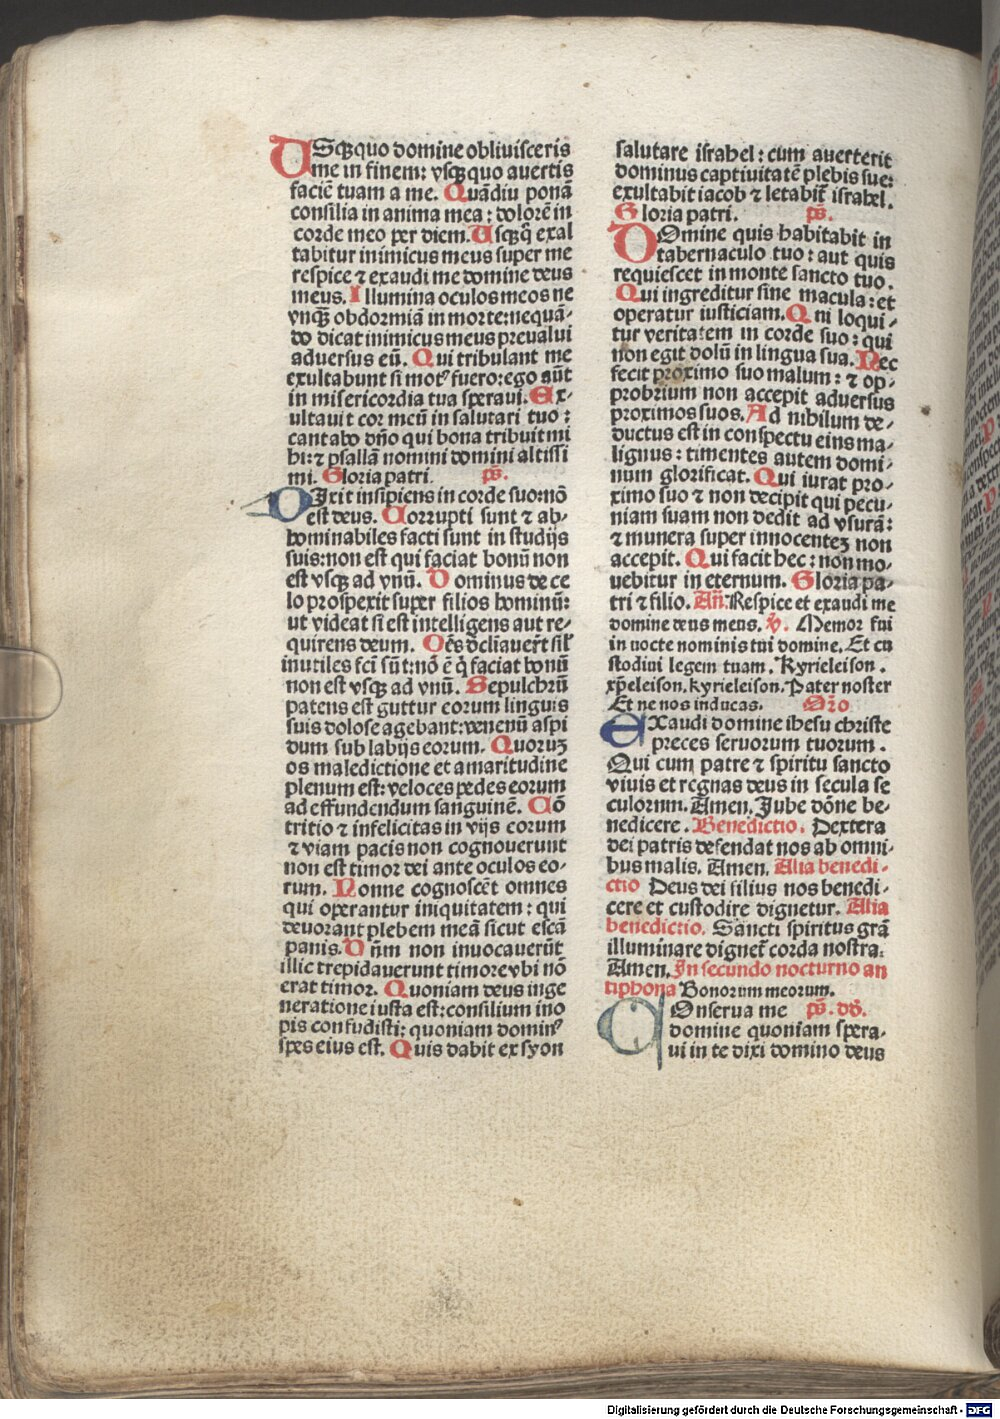 USqꝫquo domine obliuisceris
me in finem: vsqꝫquo auertis
faciē tuam a me. Quādiu ponā
consilia in anima mea: dolorē in
corde meo per diem. Usqꝫq̄ exal
tabitur inimicus meus super me
respice ⁊ exaudi me domine deus
meus. Illumina oculos meos ne
vnqꝫ obdormiā in morte: nequā-
do dicat inimicus meus preualui
aduersus eū. Qui tribulant me
exultabunt si motꝰ fuero: ego aūt
in misericordia tua speraui. Ex-
ultauit cor meū in salutari tuo:
cantabo dn̄o qui bona tribuit mi
hi: ⁊ psallā nomini domini altissi
mi. Gloria patri. ps̄.
DIxit insipiens in corde suo: nō
est deus. Corrupti sunt ⁊ ab-
hominabiles facti sunt in studijs
suis: non est qui faciat bonū non
est vsqꝫ ad vnū. Dominus de ce
lo prospexit super filios hominū:
ut videat si est intelligens aut re-
quirens deum. Oēs dcl̄iauer̄t sil̄
inutiles fc̄i sūt: nō ē q̄ faciat bonū
non est vsqꝫ ad vnū. Sepulchrū
patens est guttur eorum linguis
suis dolose agebant: venenū aspi
dum sub labijs eorum. Quoruꝫ
os maledictione et amaritudine
plenum est: veloces pedes eorum
ad effundendum sanguinē. Cō
tritio ⁊ infelicitas in vijs eorum
⁊ viam pacis non cognouerunt
non est timor dei ante oculos eo-
rum. Nonne cognoscēt omnes
qui operantur iniquitatem: qui
deuorant plebem meā sicut escā
panis. Dn̄m non inuocauerūt
illic trepidauerunt timore vbi nō
erat timor. Quoniam deus in ge
neratione iusta est: consilium ino
pis confudisti: quoniam dominꝰ
spes eius est. Quis dabit ex syon
salutare israhel: cum auerterit
dominus captiuitatē plebis sue:
exultabit iacob ⁊ letabit̄ israhel.
Gloria patri. ps̄.
DOmine quis habitabit in
tabernaculo tuo: aut quis
requiescet in monte sancto tuo.
Qui ingreditur sine macula: et
operatur iusticiam. Qui loqui-
tur veritatem in corde suo: qui
non egit dolū in lingua sua. Nec
fecit proximo suo malum: ⁊ op-
probrium non accepit aduersus
proximos suos. Ad nihilum de-
ductus est in conspectu eius ma-
lignus: timentes autem domi-
num glorificat. Qui iurat pro-
ximo suo ⁊ non decipit qui pecu-
niam suam non dedit ad vsurā:
⁊ munera super innocenteꝫ non
accepit. Qui facit hec: non mo-
uebitur in eternum. Gloria pa-
tri ⁊ filio. An̄. Respice et exaudi me
domine deus meus. ꝟ. Memor fui
in nocte nominis tui domine. Et cu
stodiui legem tuam. Kyrieleison.
xp̄eleison. kyrieleison. Pater noster
Et ne nos inducas. Or̄o
EXaudi domine ihesu christe
preces seruorum tuorum.
Qui cum patre ⁊ spiritu sancto
viuis et regnas deus in secula se
culorum. Amen. Jube dōne be-
nedicere. Benedictio. Dextera
dei patris defendat nos ab omni-
bus malis. Amen. Alia benedi-
ctio Deus dei filius nos benedi-
cere et custodire dignetur. Alia
benedictio. Sancti spiritus grā
illuminare dignet̄ corda nostra.
Amen. In secundo nocturno an
tiphona Bonorum meorum.
COnserua me ps̄. dd̄.
domine quoniam spera-
ui in te dixi domino deus
Digitalisierung gefördert durch die Deutsche Forschungsgemeinschaft - DFG